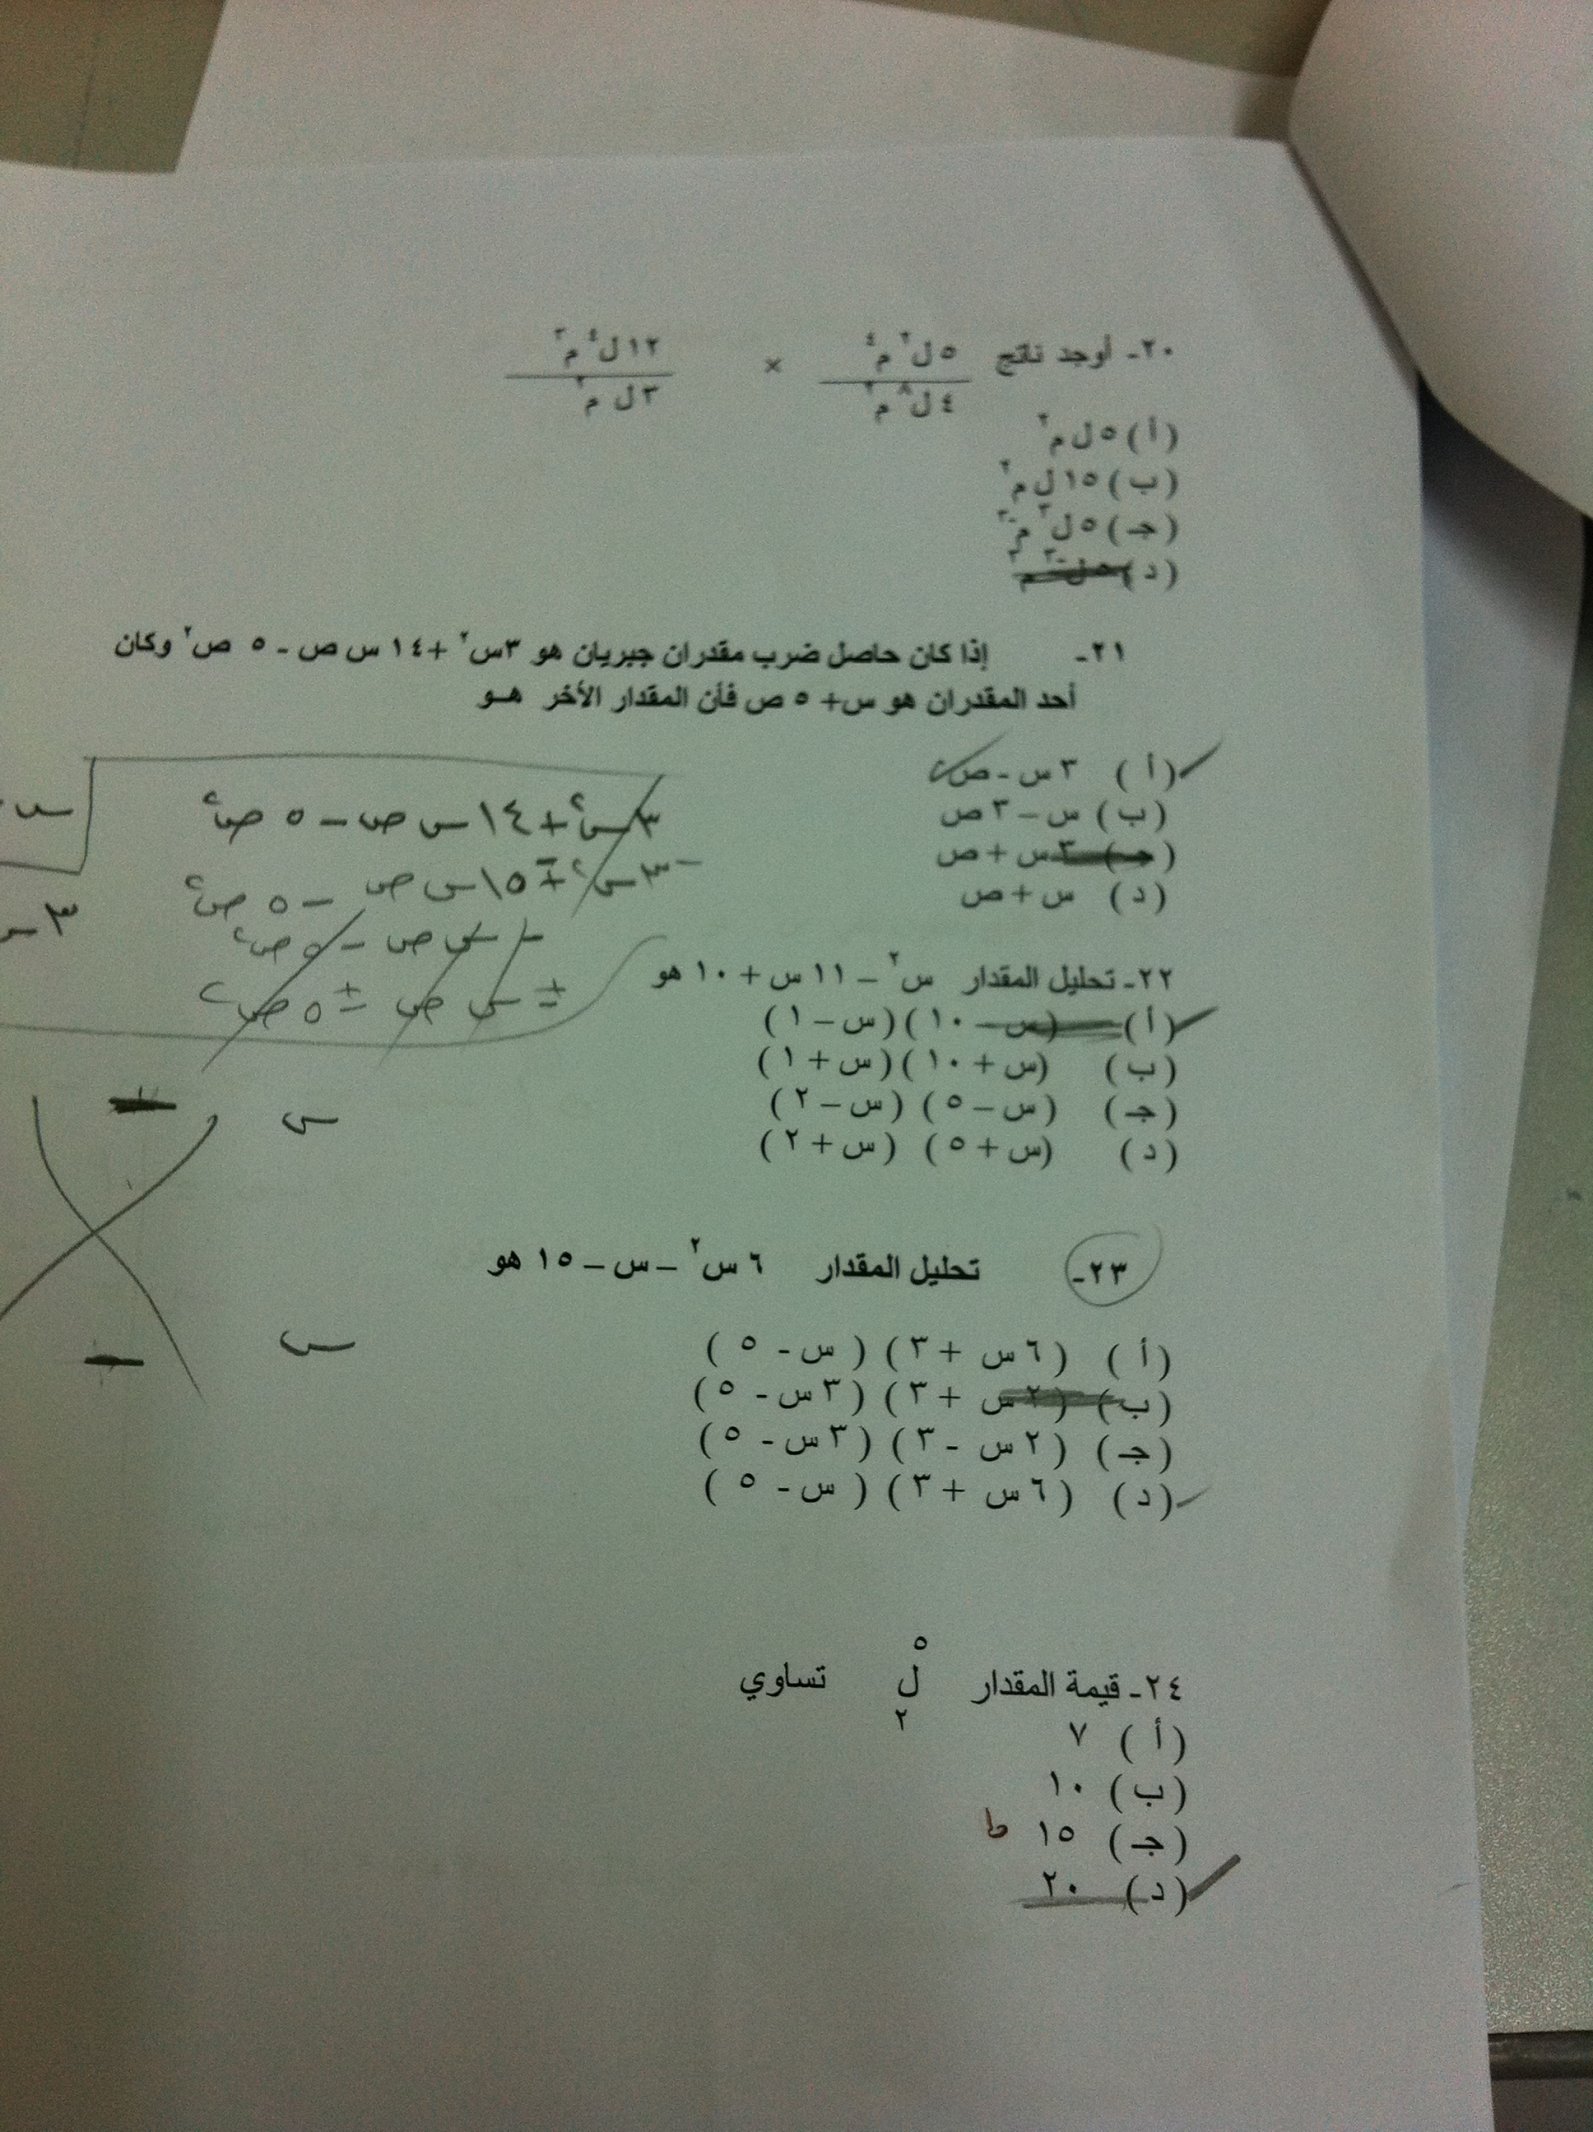 ٢٠- أوجد ناتج ٥ ل٢ م٤ × ١٢ ل٤ م٣
٤ ل٨ م٢ ٣ ل م٢
(أ) ٥ ل م٢
(ب) ١٥ ل م٢
(جـ) ٥ ل٣ م-٣
(د) ٥ ل-٣ م٣
٢١- إذا كان حاصل ضرب مقدران جبريان هو ٣س٢ + ١٤ س ص - ٥ ص٢ وكان
أحد المقدران هو س + ٥ ص فأن المقدار الأخر هـو
(أ) ٣ س - ص
(ب) س - ٣ ص
(جـ) ٣ س + ص
(د) س + ص
٣س٢ + ١٤ س ص - ٥ ص٢
-٣س٢ ∓ ١٥ س ص - ٥ ص٢
- س ص - ٥ ص٢
± س ص ± ٥ ص٢
س
٣ س
٢٢- تحليل المقدار س٢ - ١١ س + ١٠ هو
(أ) (س - ١٠) (س - ١)
(ب) (س + ١٠) (س + ١)
(جـ) (س - ٥) (س - ٢)
(د) (س + ٥) (س + ٢)
س
س
٢٣- تحليل المقدار ٦ س٢ - س - ١٥ هو
(أ) (٦ س + ٣) (س - ٥)
(ب) (٢ س + ٣) (٣ س - ٥)
(جـ) (٢ س - ٣) (٣ س - ٥)
(د) (٦ س + ٣) (س - ٥)
٢٤- قيمة المقدار ٥ل٢ تساوي
(أ) ٧
(ب) ١٠
(جـ) ١٥ ط
(د) ٢٠